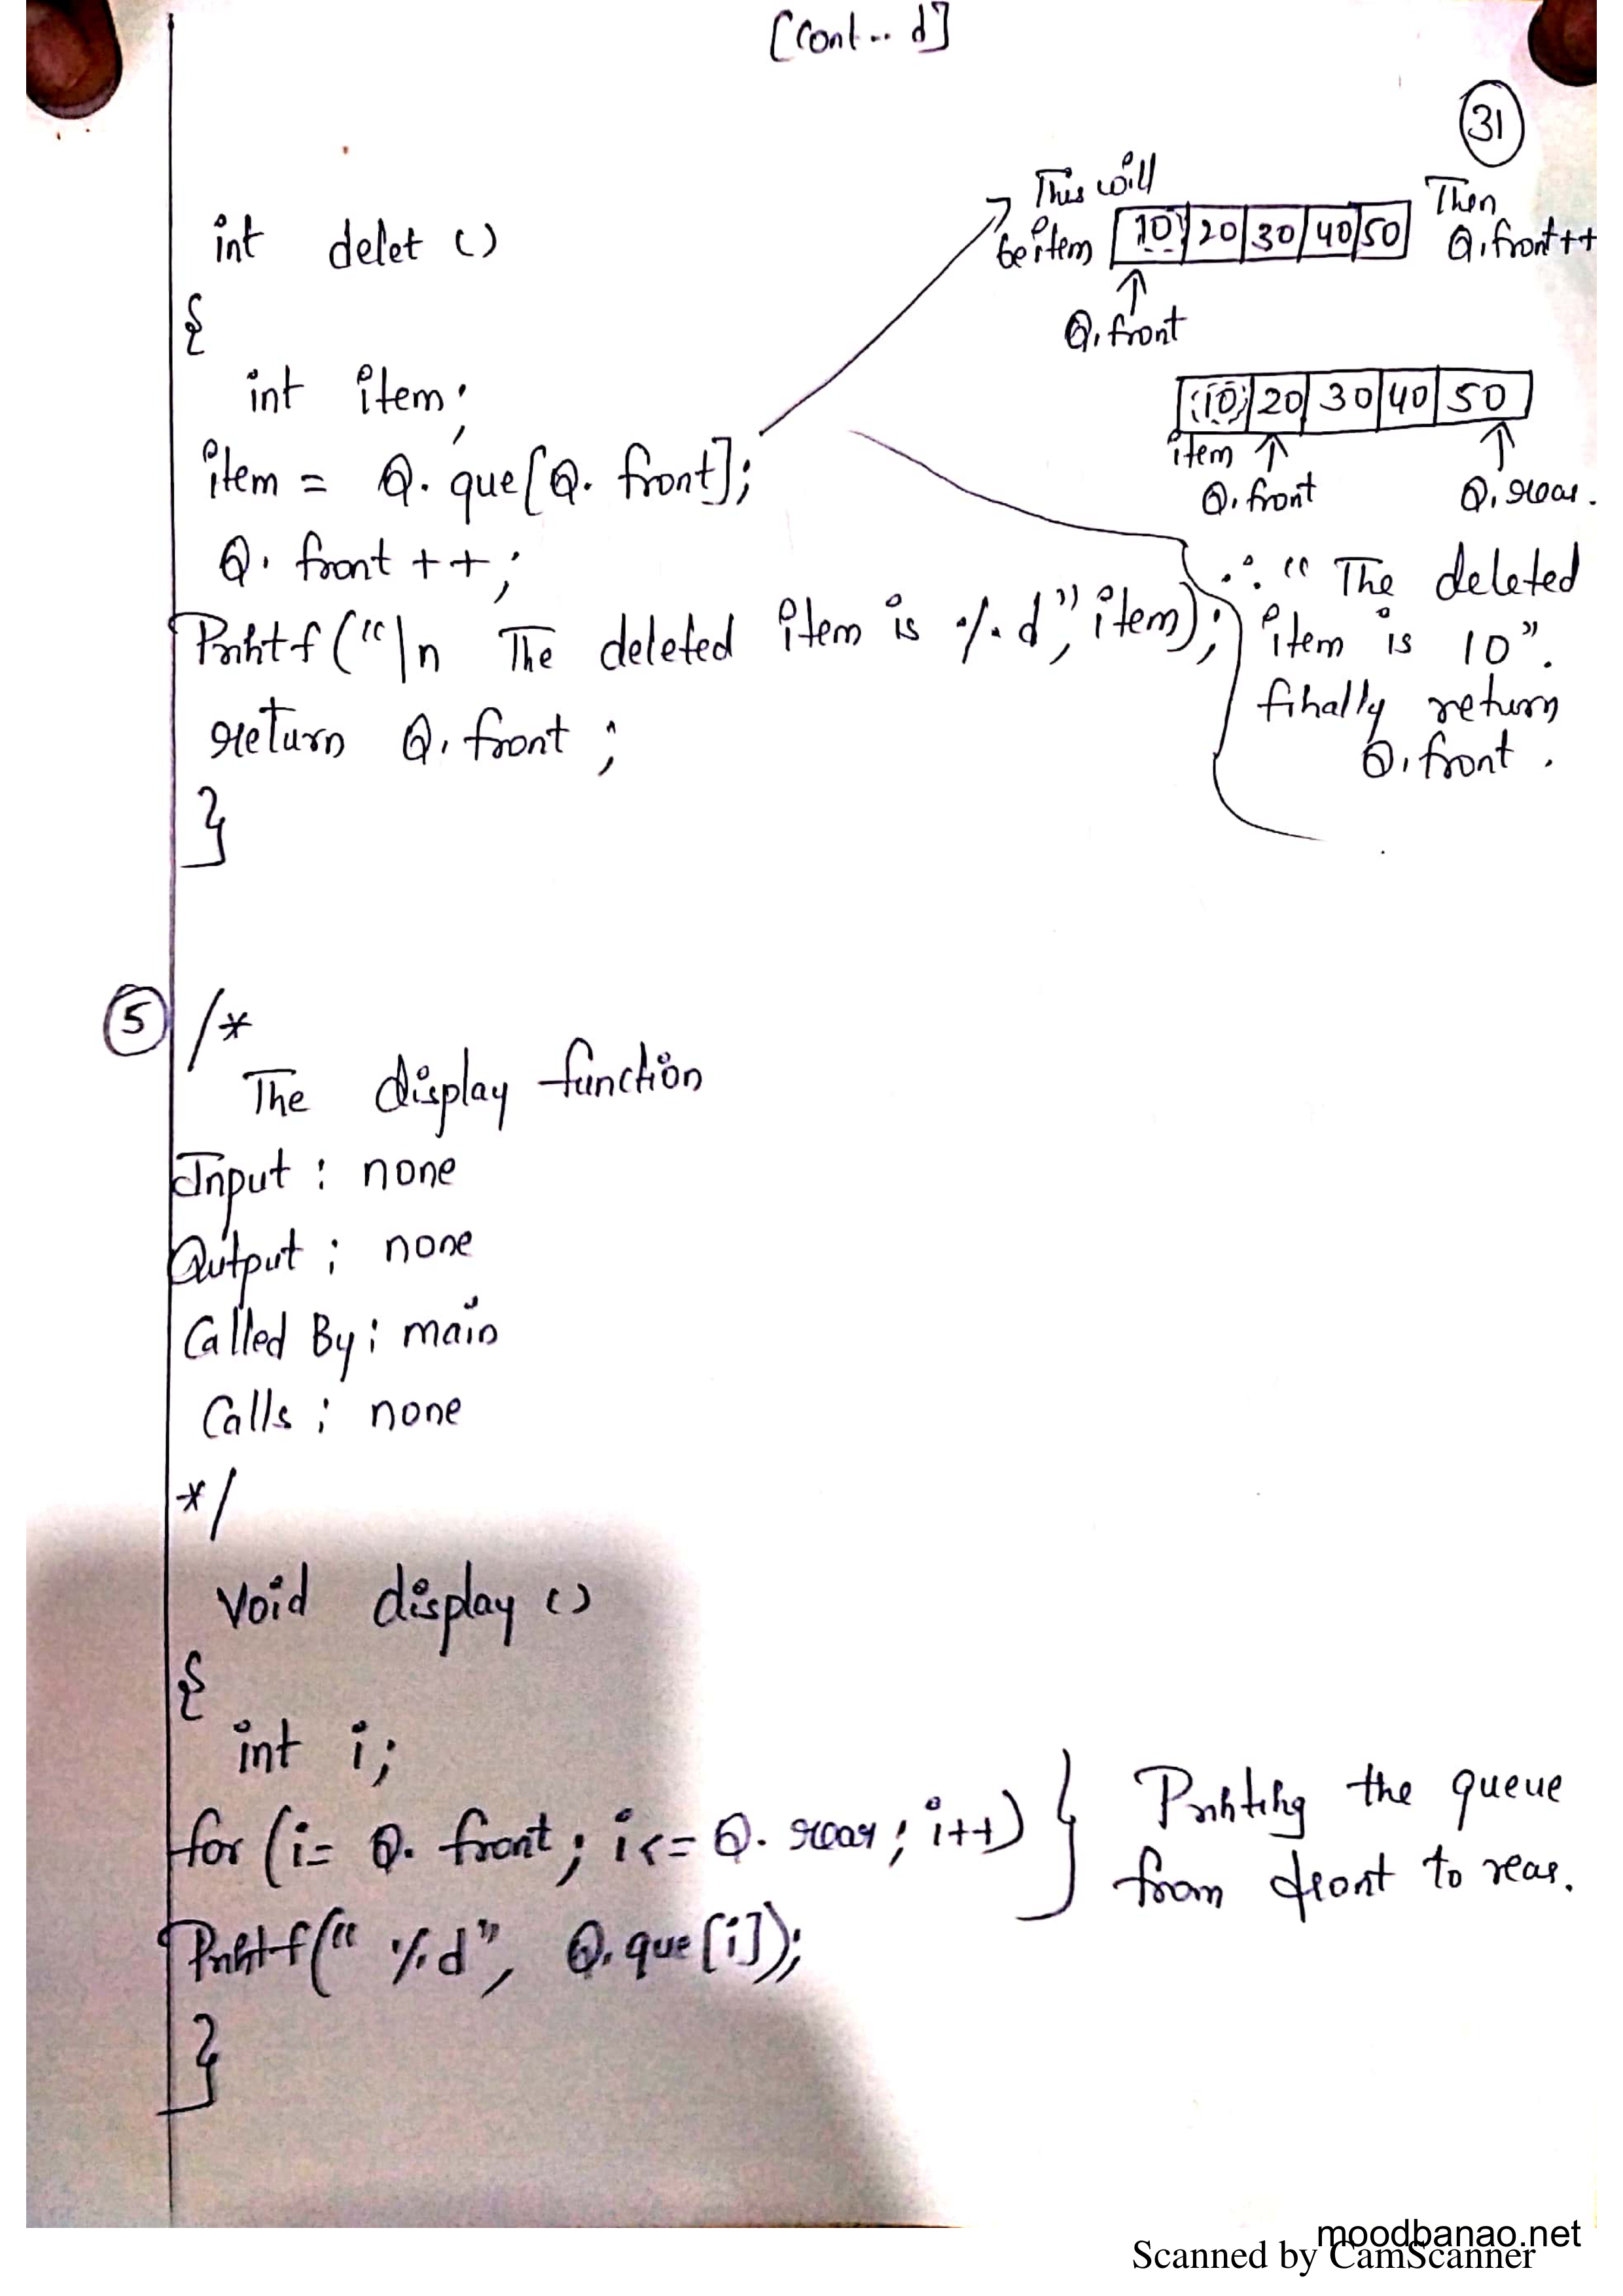 [Cont..d]
31
int delet ()
{
int item;
item = Q. que[Q. front];
Q. front ++;
Printf ("\n The deleted item is %d", item);
return Q. front ;
}
This will
be item 10 20 30 40 50
Then
Q. front++
Q. front
10 20 30 40 50
item
Q. front Q. rear.
∴ "The deleted
item is 10".
finally return
Q. front .
5 /*
The display function
Input : none
Output : none
Called By : main
Calls : none
*/
Void display ()
{
int i;
for (i= Q. front ; i<= Q. rear ; i++)
Printf(" %d", Q. que[i]);
}
} Printing the queue
from front to rear.
moodbanao.net
Scanned by CamScanner